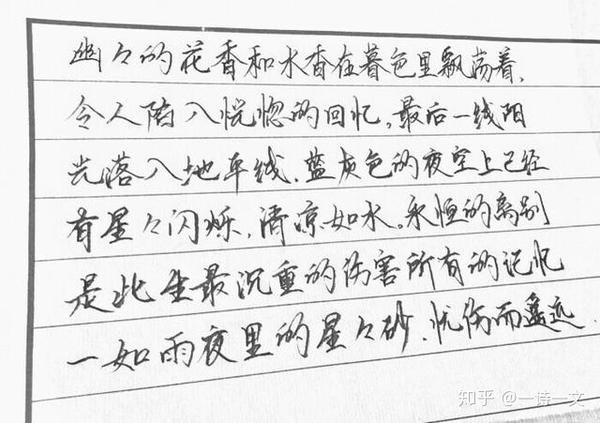 幽々的花香和水香在暮色里飘荡着,
令人陷入恍惚的回忆,最后一线阳
光落入地平线.蓝灰色的夜空上已经
有星々闪烁,清凉如水.永恒的离别
是此生最沉重的伤害所有的记忆
一如雨夜里的星々砂.忧伤而遥远.
知乎 @一诗一文